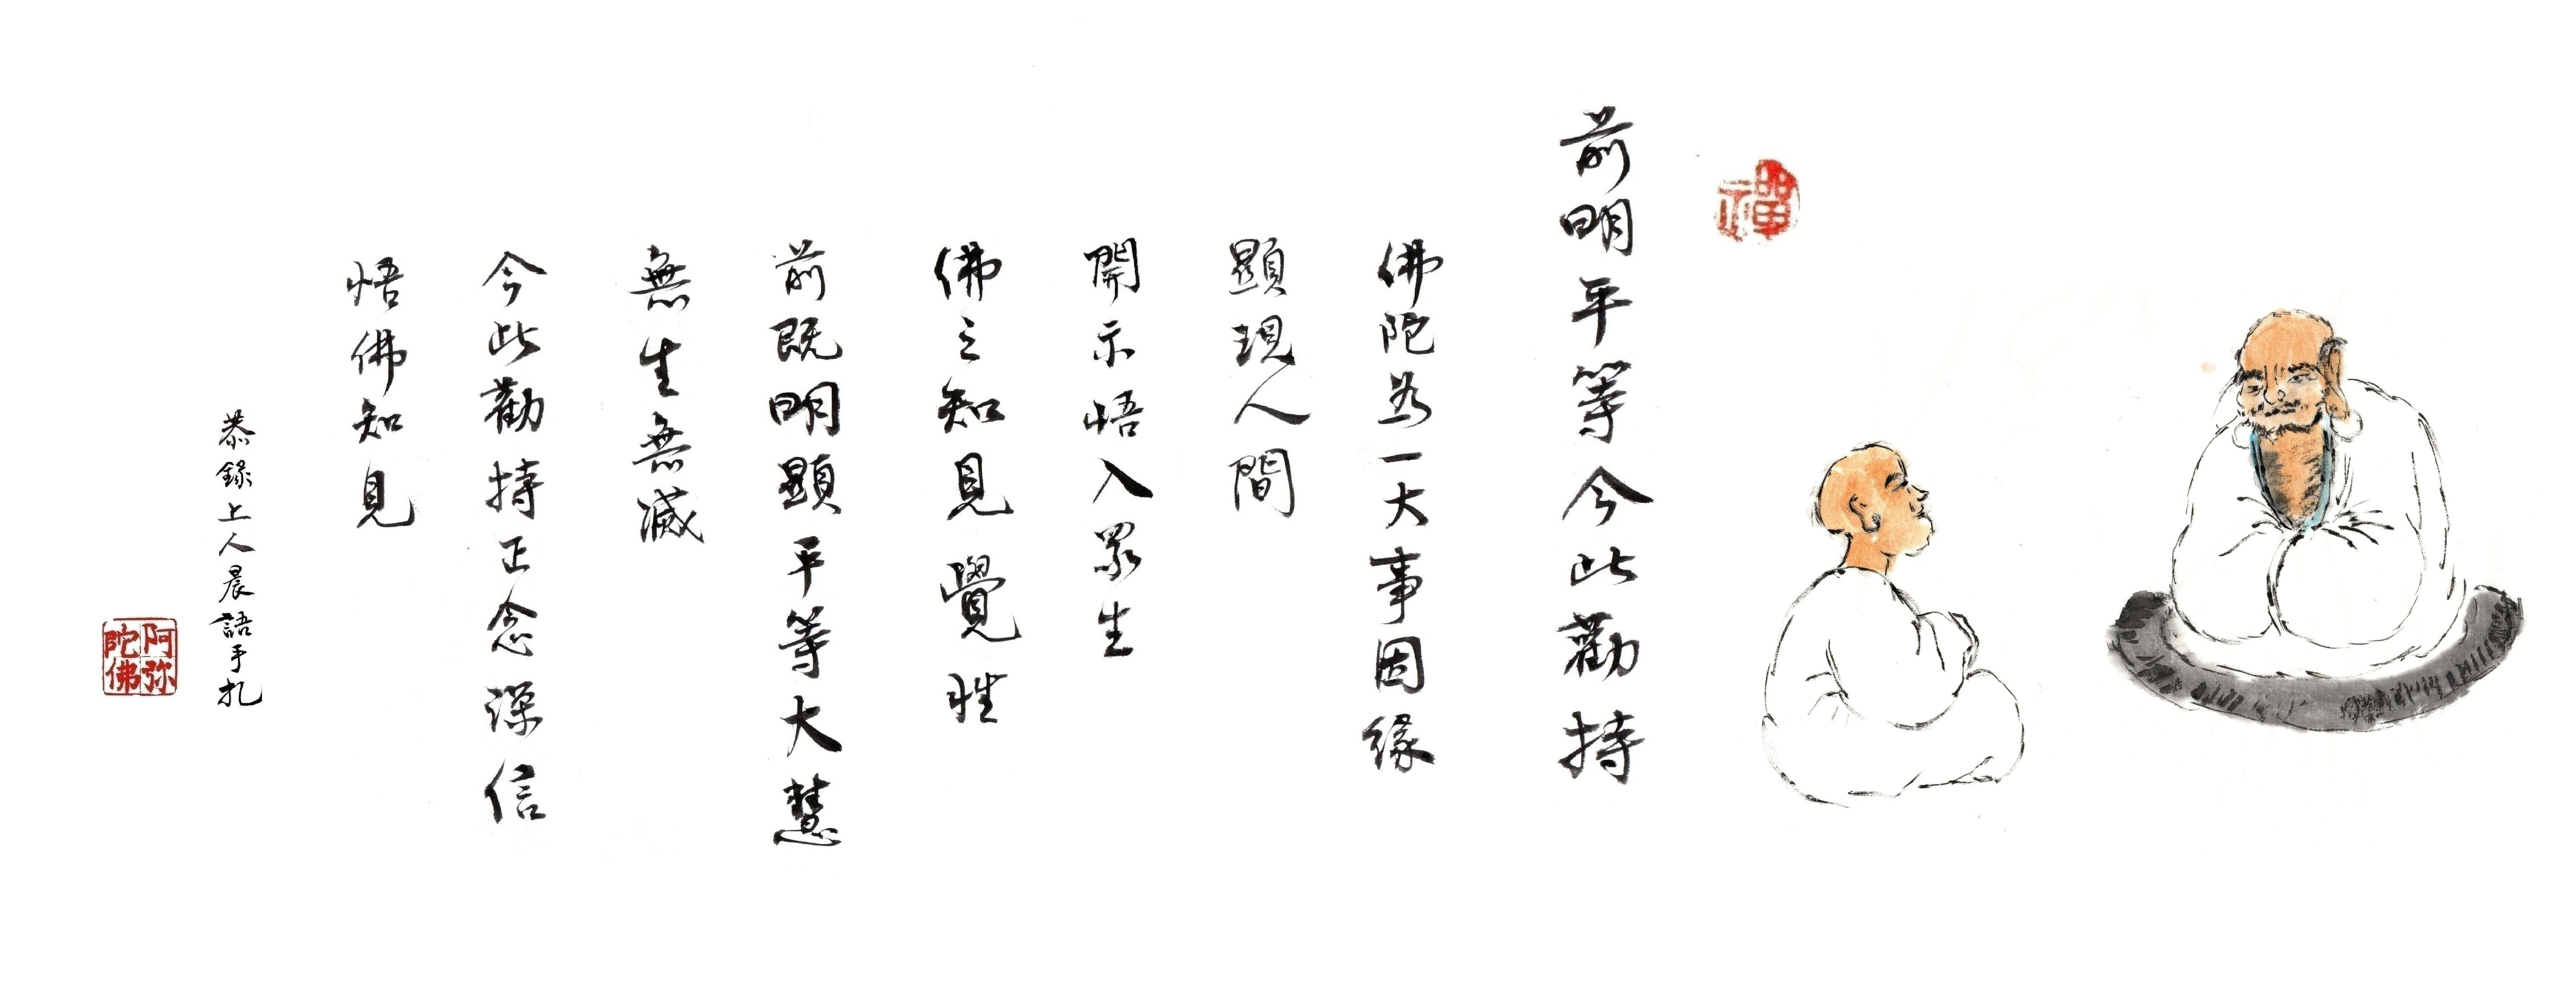 禪
前明平等今此勸持
佛陀為一大事因緣
顯現人間
開示悟入眾生
佛之知見覺性
前既明顯平等大慧
無生無滅
今此勸持正念深信
悟佛知見
恭錄上人晨語手扎
阿弥陀佛